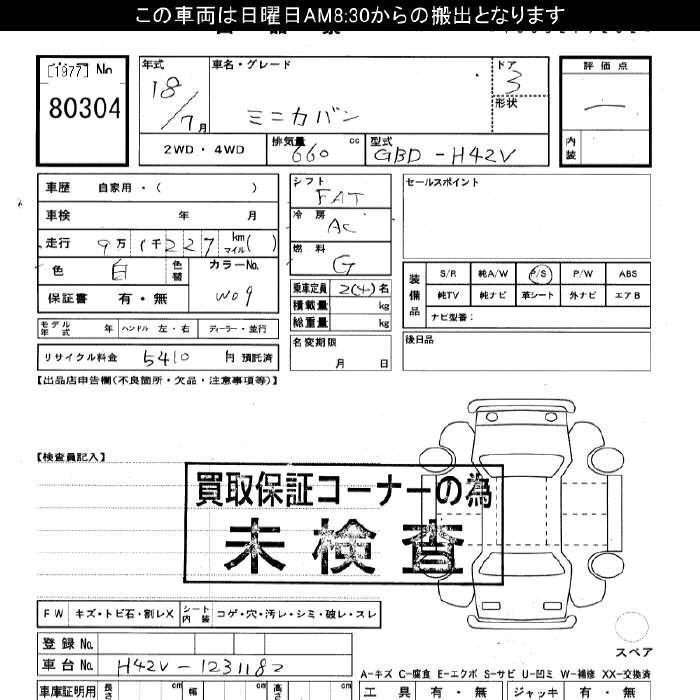 この車両は日曜日AM8:30からの搬出となります
[1977] No 80304
年式 18/7月
車名・グレード ミニカバン
ドア 3
形状
評価点 —
内装
2WD・4WD
排気量 660 cc
型式 GBD-H42V
車歴 自家用・( )
車検 年 月
走行 9万1千227 km マイル( )
色 白 色替 カラーNo. W09
保証書 有・無
モデル年式 年 ハンドル 左・右 ディーラー・並行
リサイクル料金 5410 円 預託済
シフト FAT
冷房 AC
燃料 G
乗車定員 2(4)名
積載量 kg
総重量 kg
名変期限 月 日
セールスポイント
装備品
S/R 純A/W P/S P/W ABS
純TV 純ナビ 革シート 外ナビ エアB
ナビ型番:
後日品
【出品店申告欄(不良箇所・欠品・注意事項等)】
【検査員記入】
買取保証コーナーの為
未検査
FW キズ・トビ石・割レX シート内装 コゲ・穴・汚レ・シミ・破レ・スレ
登録No.
車台No. H42V-1231182
スペア
A-キズ C-腐食 E-エクボ S-サビ U-凹ミ W-補修 XX-交換済
車庫証明用 長さ cm 幅 cm 高さ cm
工具 有・無 ジャッキ 有・無